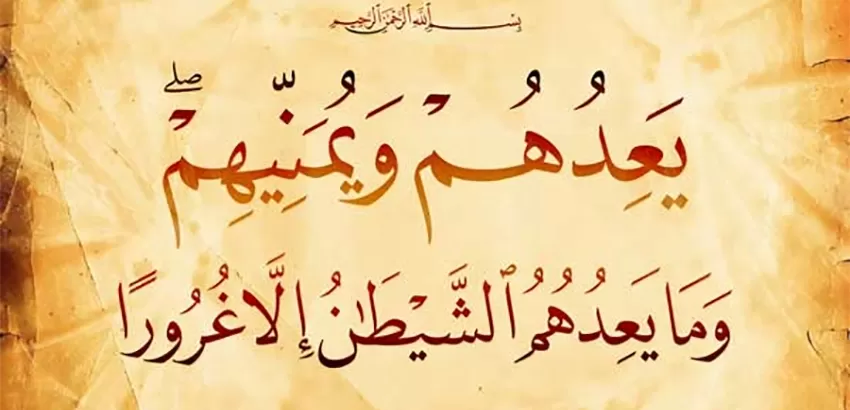 بِسْمِ ٱللَّهِ ٱلرَّحْمَٰنِ ٱلرَّحِيمِ
يَعِدُهُمْ وَيُمَنِّيهِمْ ۖ
وَمَا يَعِدُهُمُ ٱلشَّيْطَٰنُ إِلَّا غُرُورًا